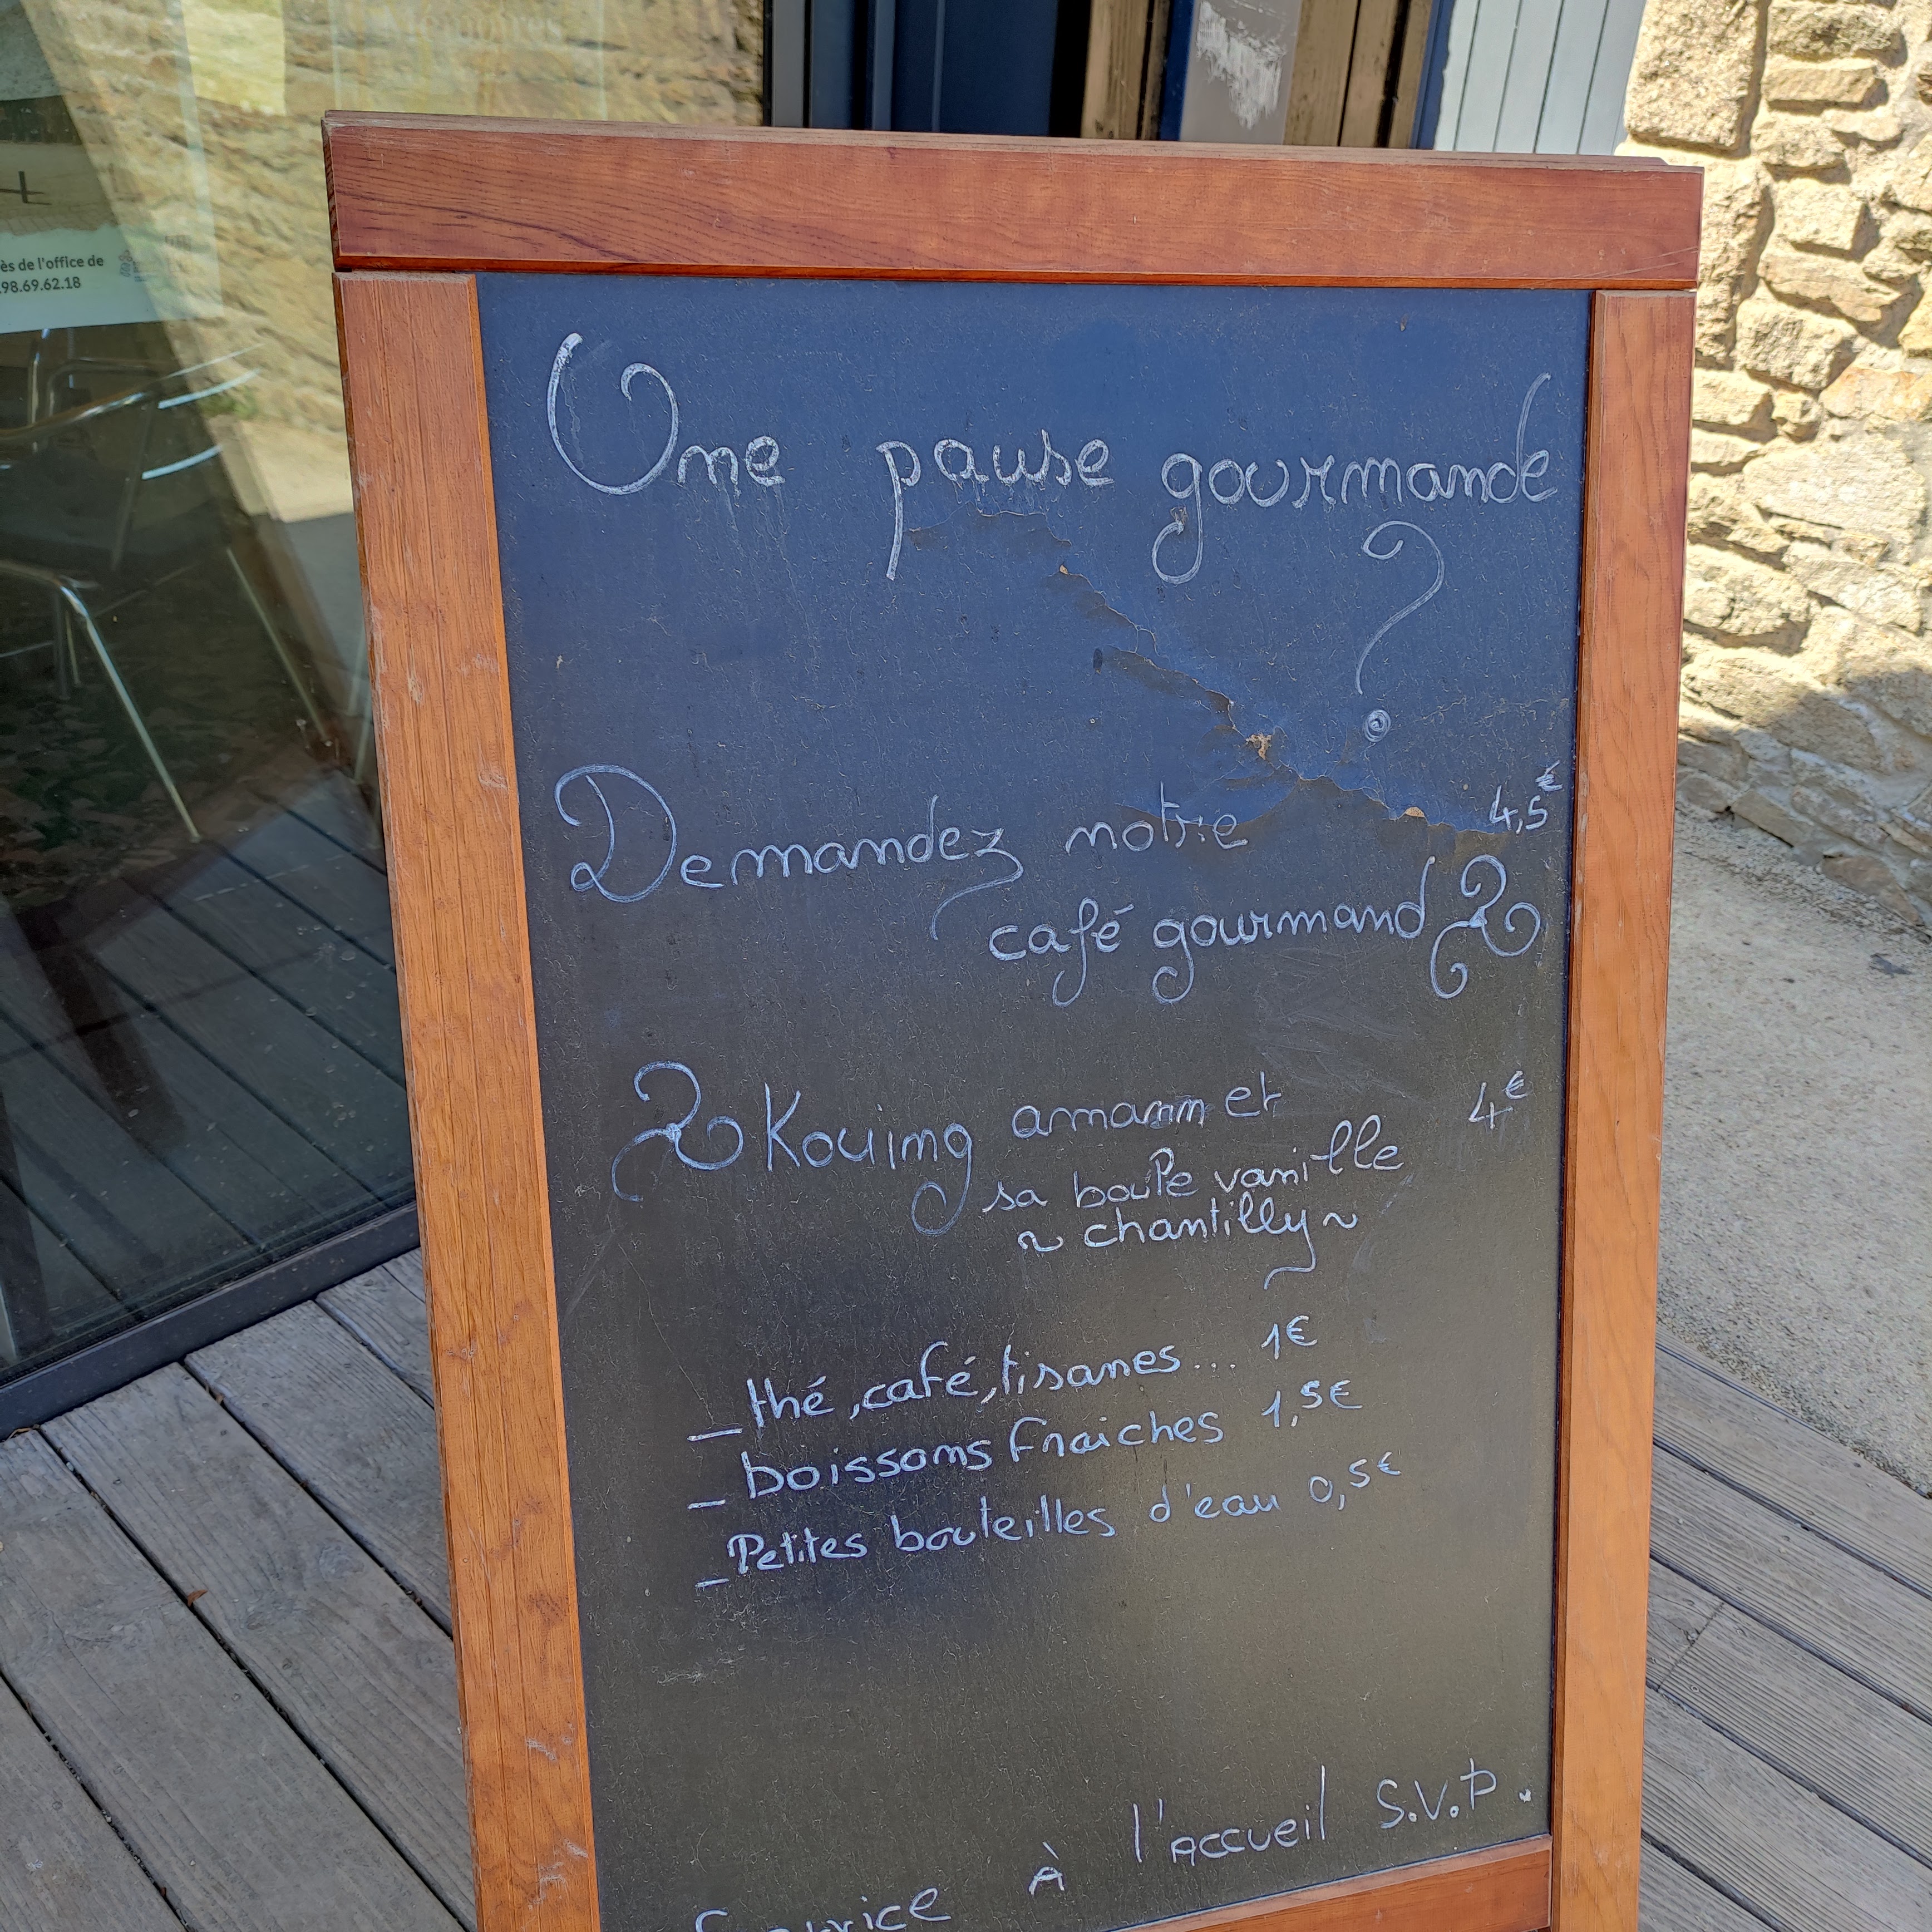 Mémoires
ès de l'office de
.98.69.62.18
Une pause gourmande
?
Demandez notre 4,5€
café gourmand
Kouing amann et 4€
sa boule vanille
~ chantilly ~
_ thé, café, tisanes... 1€
_ boissons fraiches 1,5€
_ Petites bouteilles d'eau 0,5€
À l'accueil S.V.P.